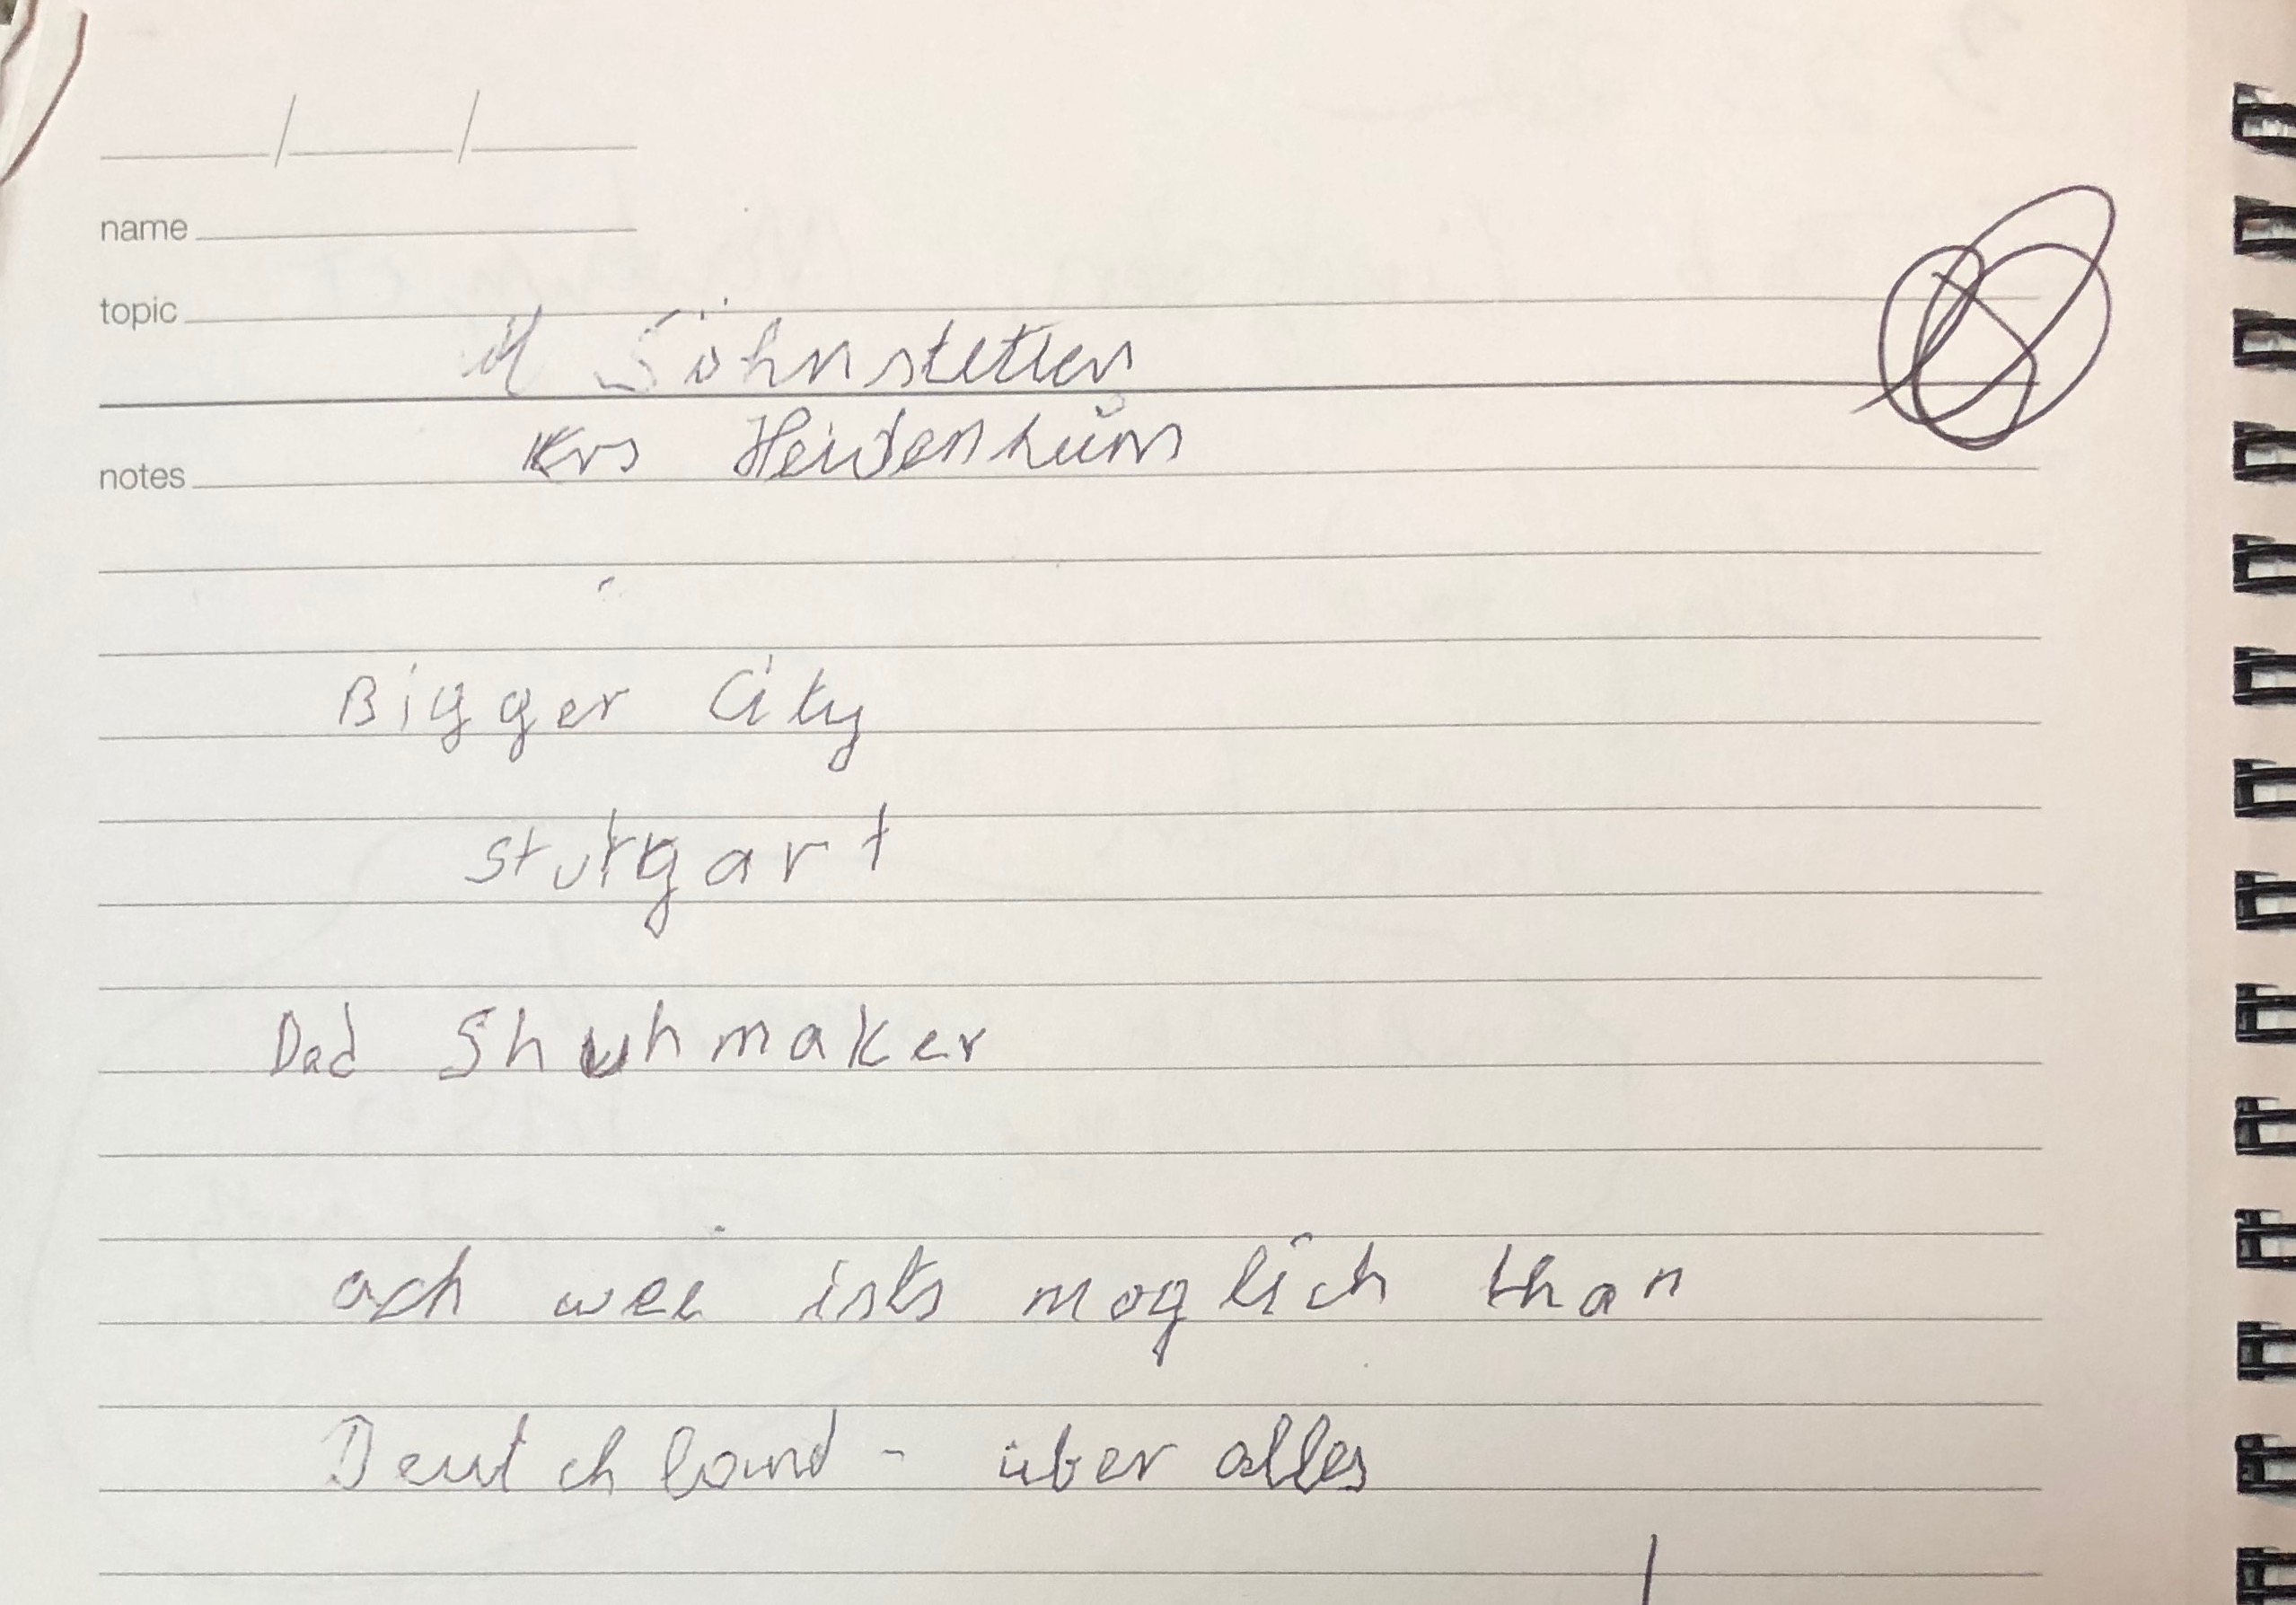 name
topic
M Söhnstetten
Krs Heidenheim
notes
Bigger City
Stuttgart
Dad Shuhmaker
ach wei ists moglich than
Deutchland - über alles